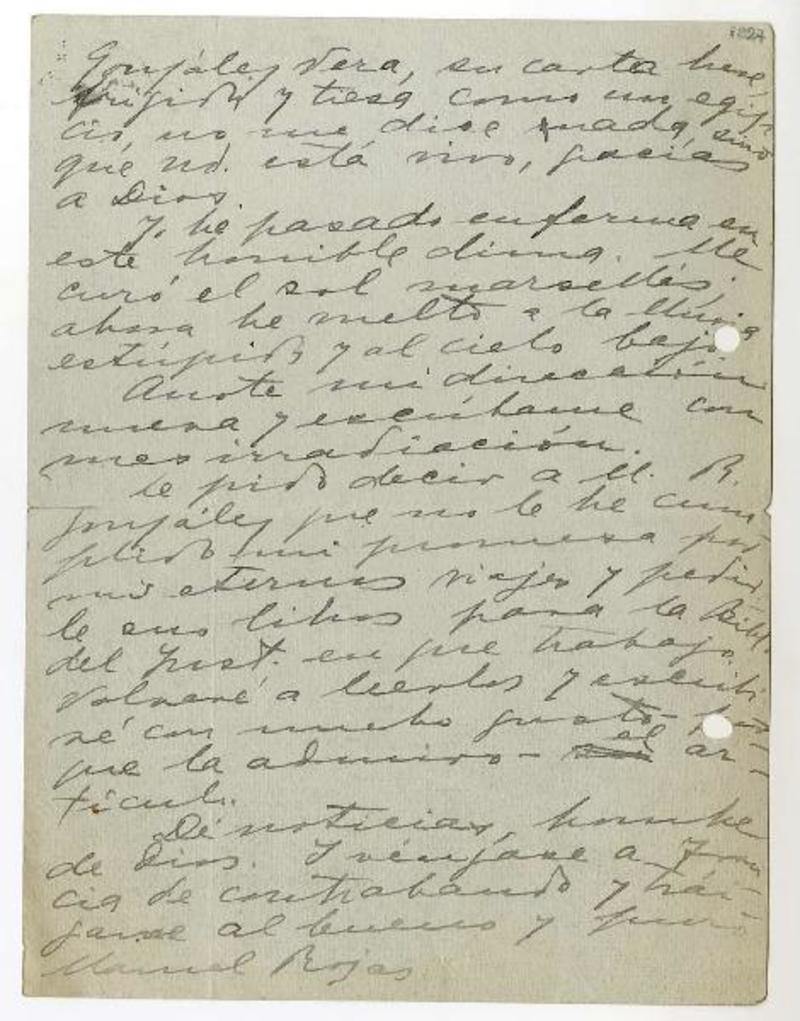 González Vera, su carta breve,
frígida y tiesa como un egip-
cio, no me dice nada, sino
que Ud. está vivo, gracias
a Dios.
Yo he pasado enferma en
este horrible clima. Me
curó el sol marsellés;
ahora he vuelto a la lluvia
estúpida y al cielo bajo
Anote mi dirección
nueva y escríbame con
mes irradiación.
Le pido decir a M. R.
González que no le he cum-
plido mi promesa por
mis eternos viajes y pedir-
le sus libros para la Bibl.
del Inst. en que trabajo.
Volveré a leerlos y escribi-
ré con mucho gusto - por
que la admiro - el ar-
tículo.
Dé noticias, hombre
de Dios. I véngase a Fran
cia de contrabando y trái-
game al bueno y puro
Manuel Rojas